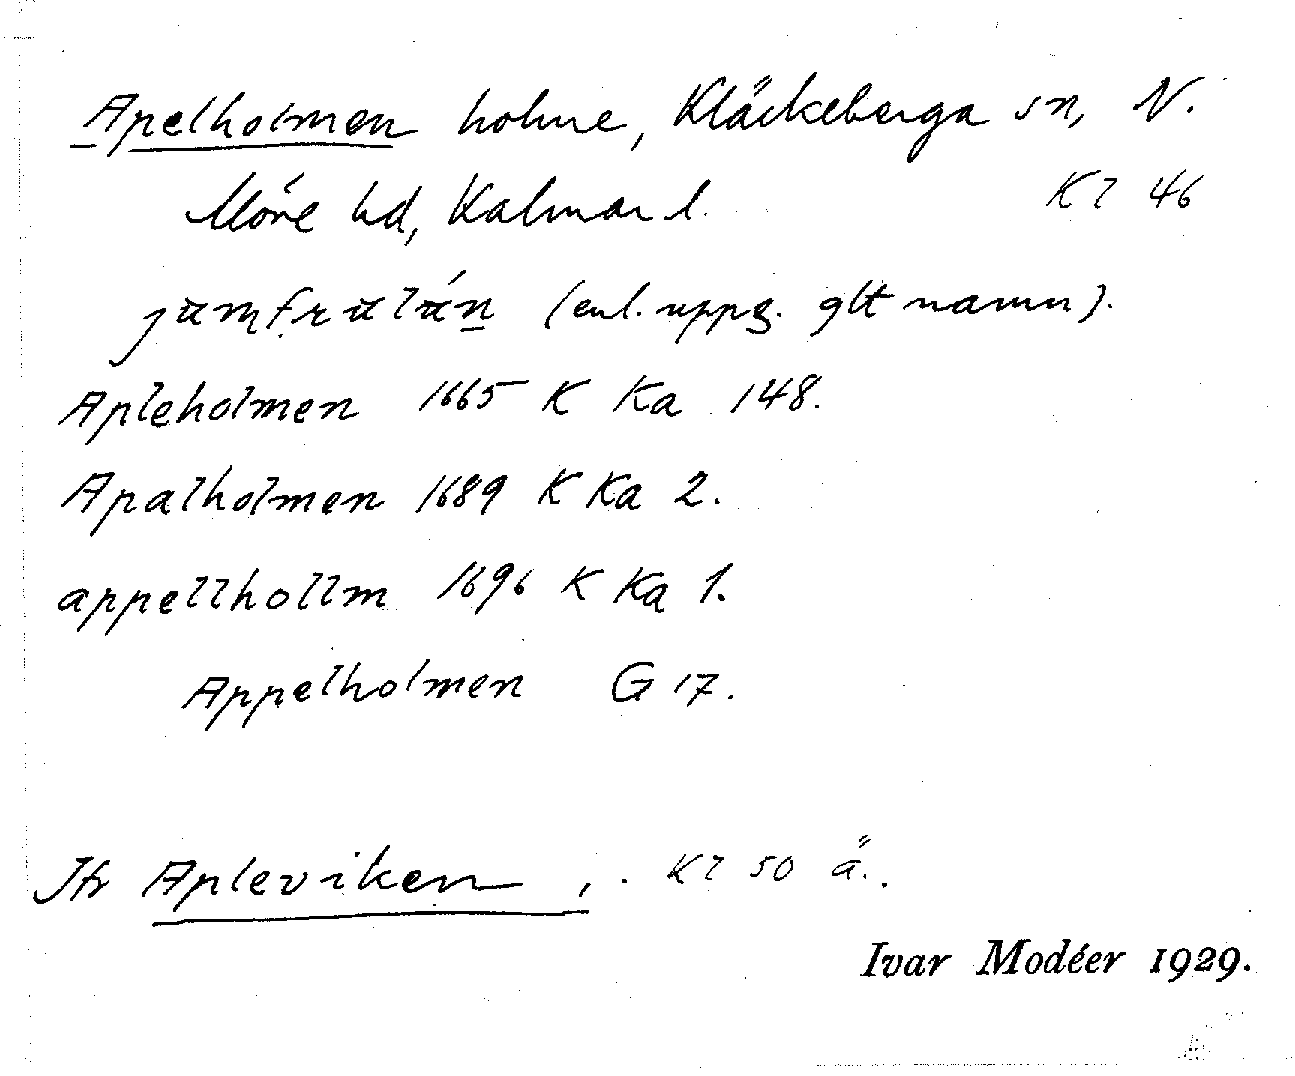 Apelholmen holme, Kläckeberga sn, N.
Möre hd, Kalmar l. Kl 46
(enl. uppg. glt namn).
Apleholmen 1665 K Ka 148.
Apalholmen 1689 K Ka 2.
appellhollm 1696 K Ka 1.
Appelholmen G 17.
Jfr Apleviken, . Kl 50 ä..
Ivar Modéer 1929.